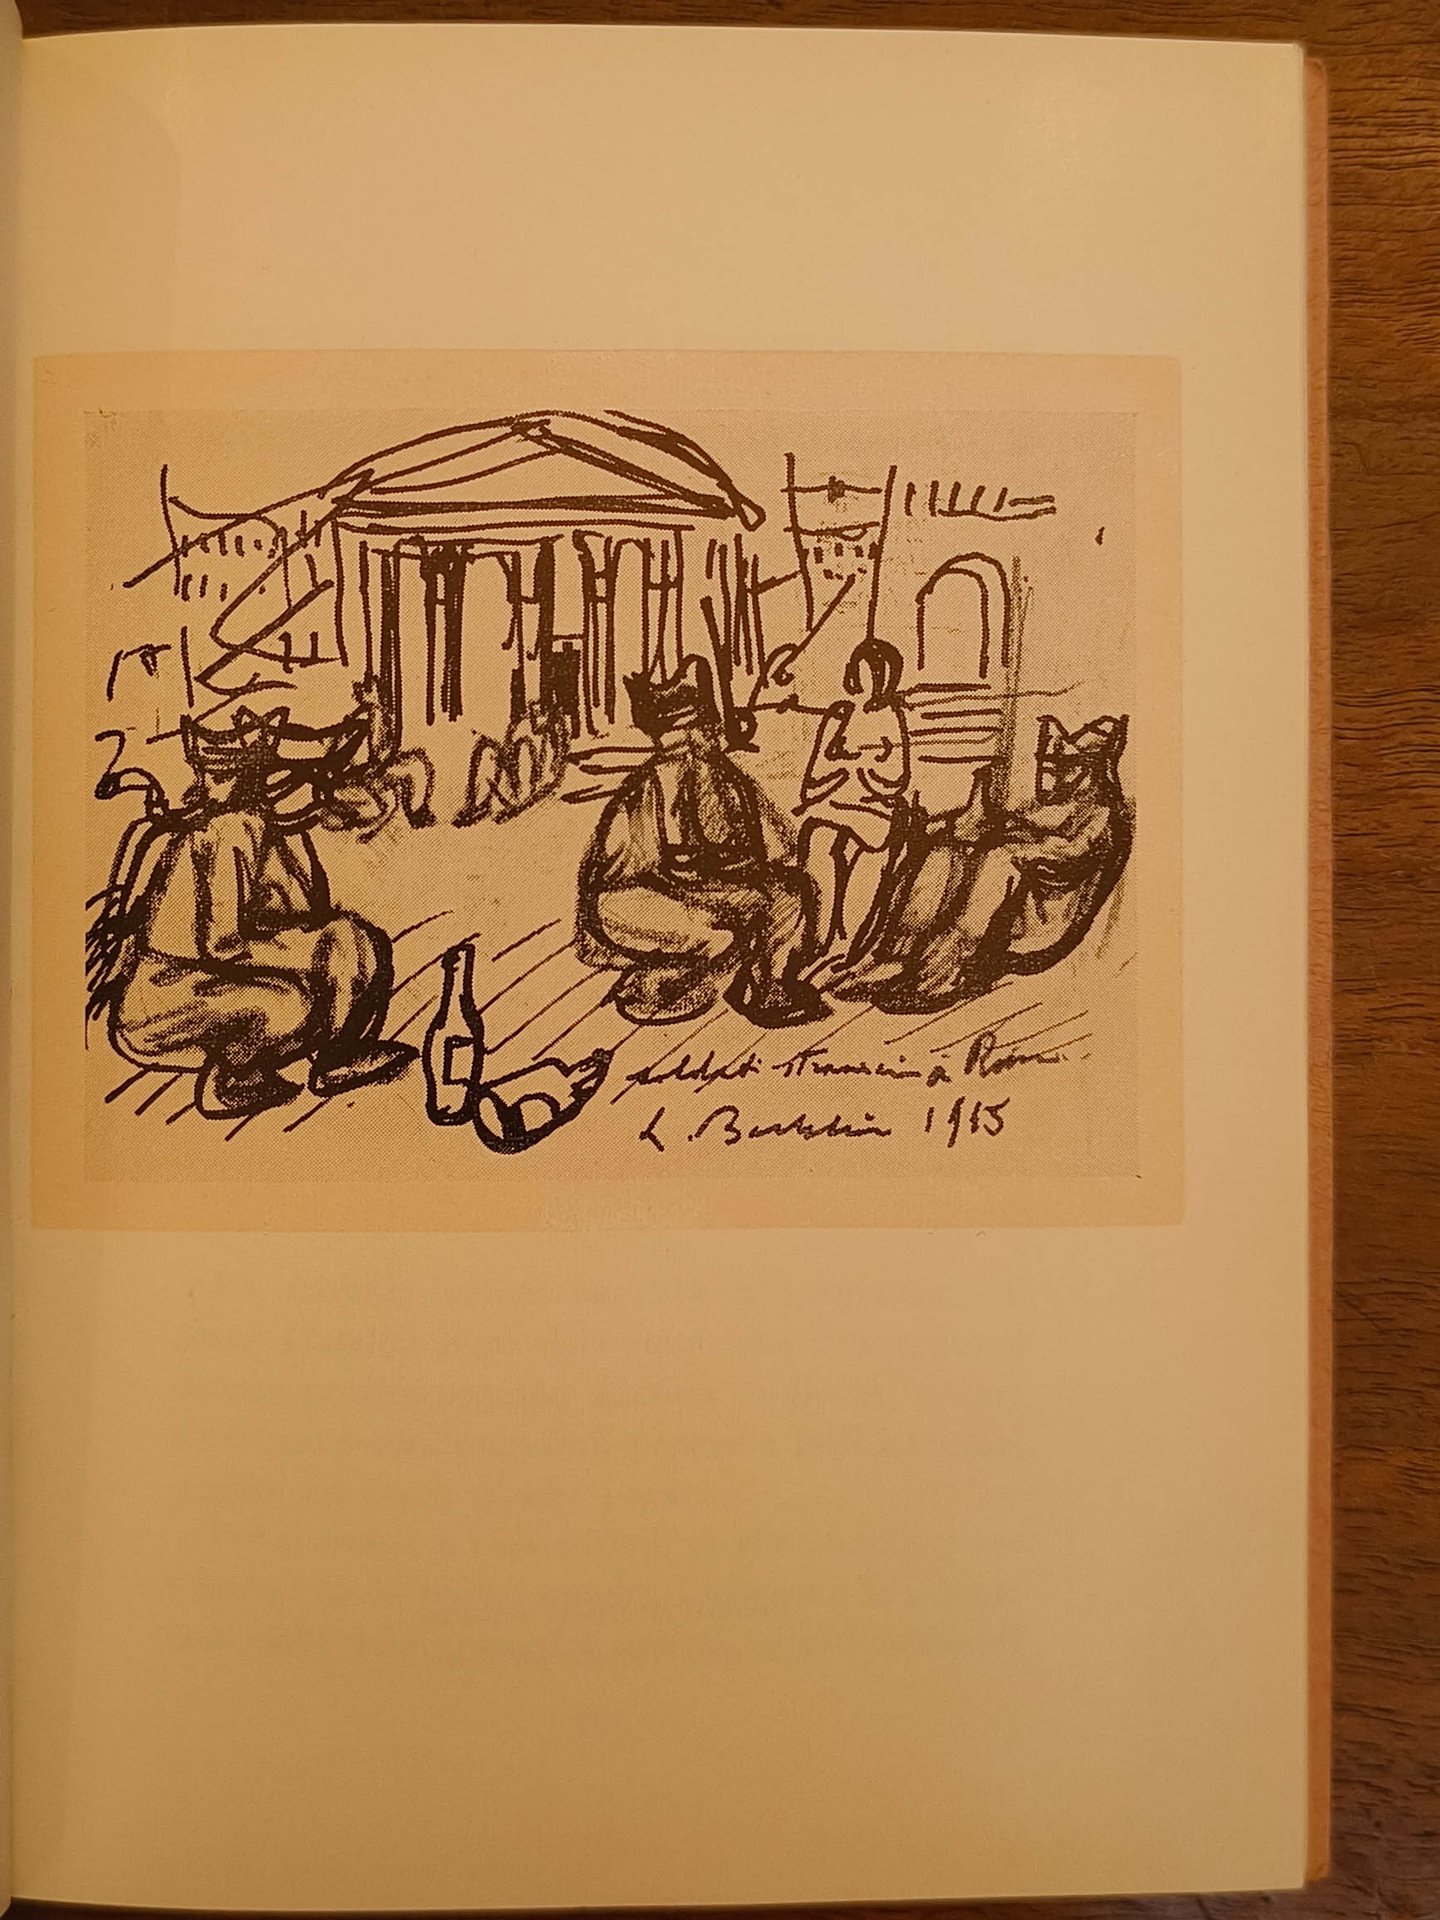 soldati stranieri a Roma
L. Bartolini 1945